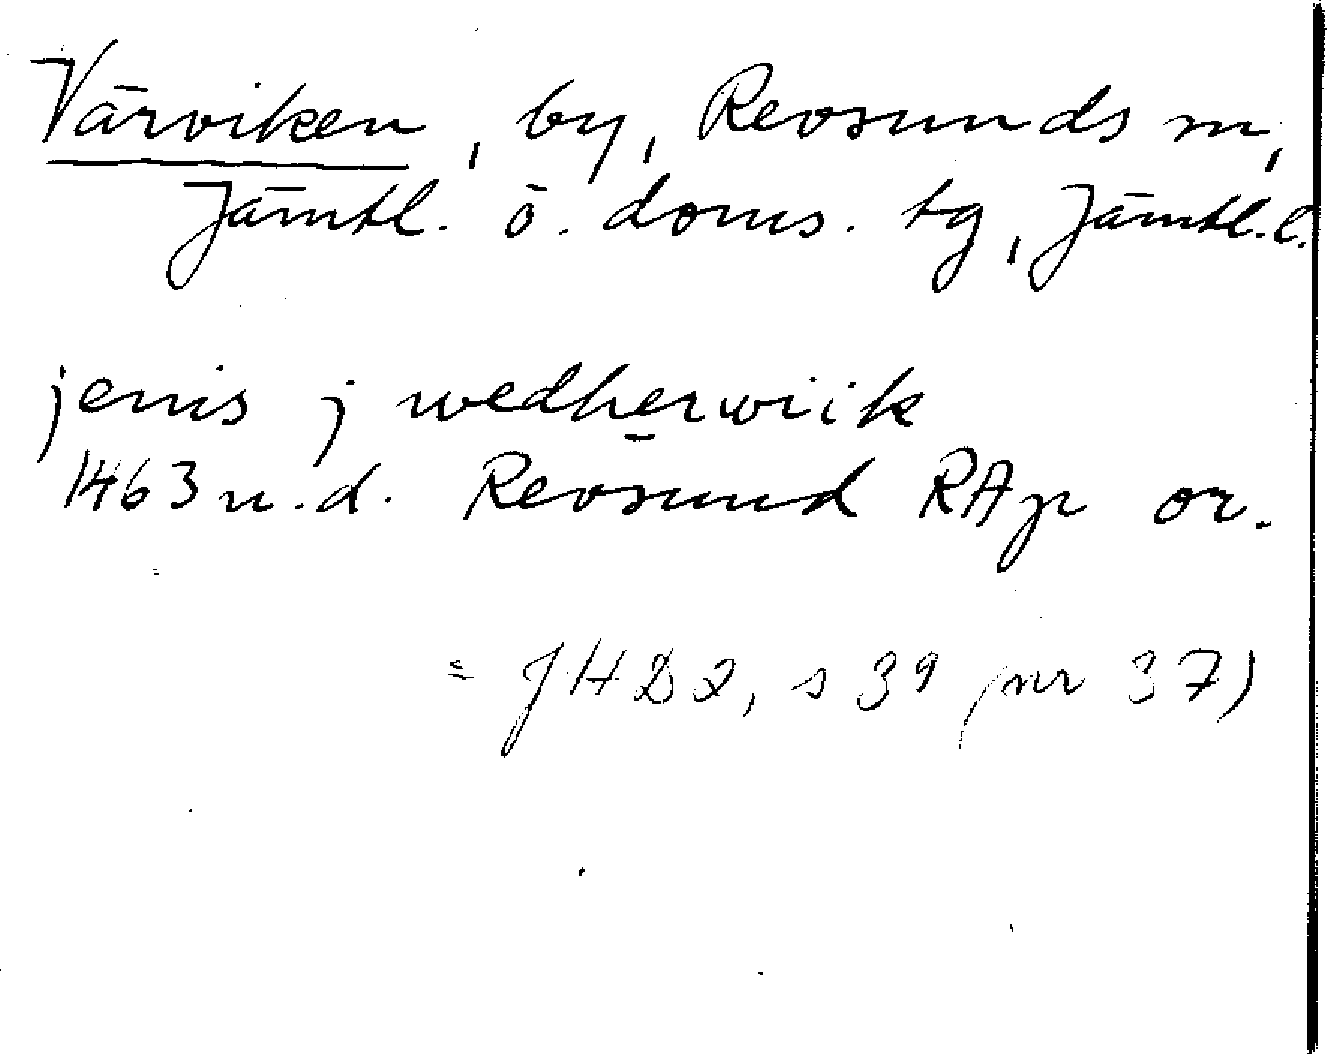 Värviken, by, Revsunds sn,
Jämtl. ö. doms. tg, Jämtl. l.
jenis j wedherwiik
1463 u.d. Revsund RAp or.
= JHD 2, s 39 (nr 37)